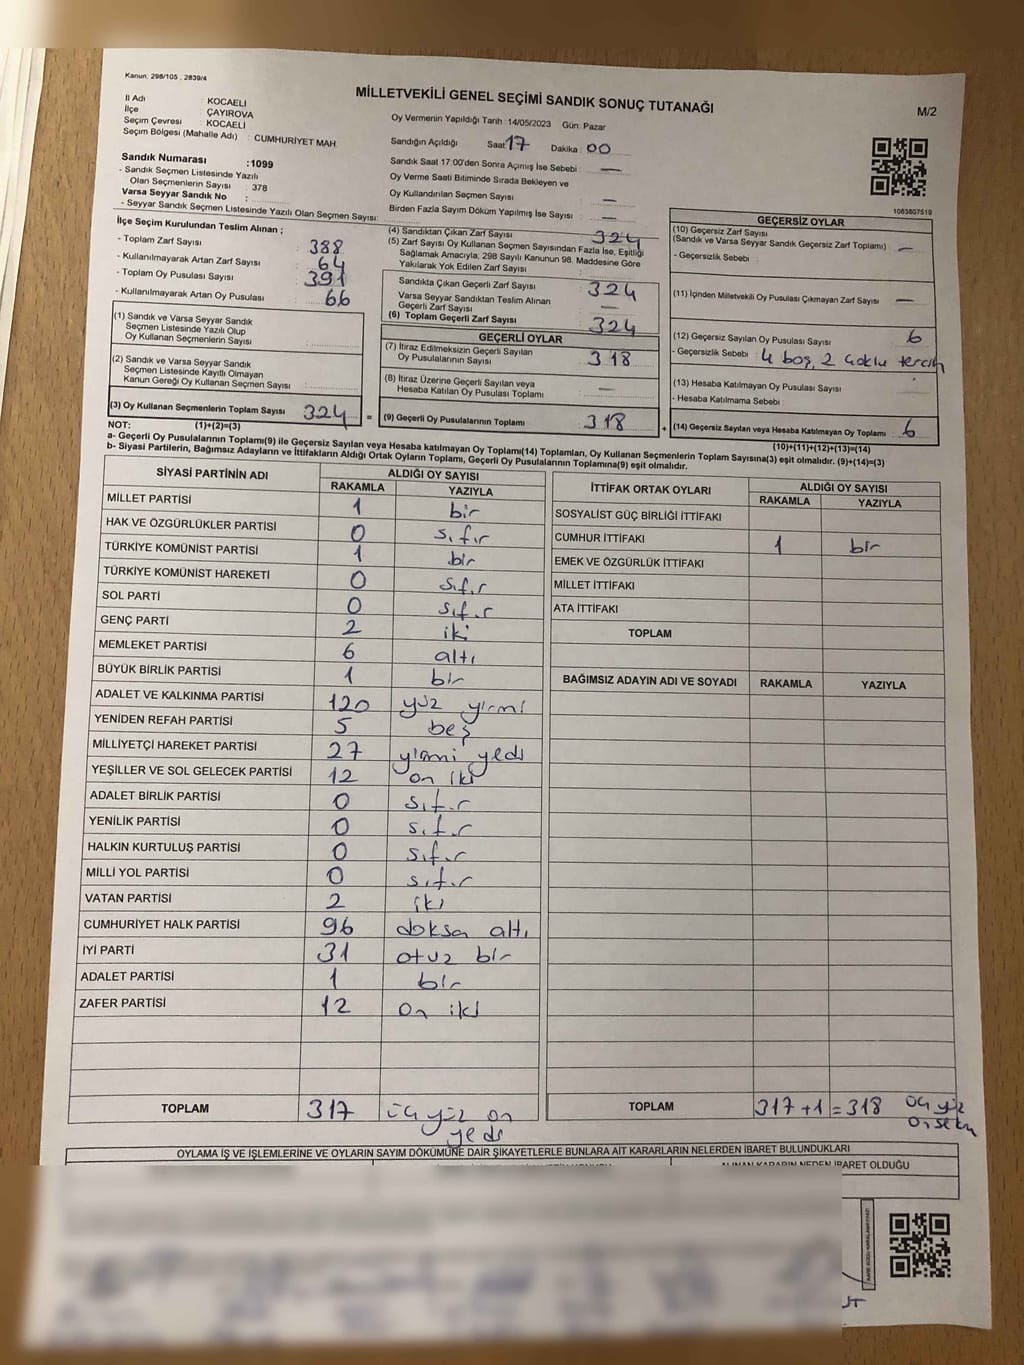 Kanun: 298/105 , 2839/4
MİLLETVEKİLİ GENEL SEÇİMİ SANDIK SONUÇ TUTANAĞI
M/2
İl Adı : KOCAELİ
İlçe : ÇAYIROVA
Seçim Çevresi : KOCAELİ
Seçim Bölgesi (Mahalle Adı) : CUMHURİYET MAH.
Oy Vermenin Yapıldığı Tarih :14/05/2023 Gün: Pazar
Sandığın Açıldığı Saat 17 Dakika : 00
Sandık Saat 17:00'den Sonra Açılmış İse Sebebi : —
Oy Verme Saati Bitiminde Sırada Bekleyen ve
Oy Kullandırılan Seçmen Sayısı : —
Birden Fazla Sayım Döküm Yapılmış İse Sayısı : —
Sandık Numarası :1099
- Sandık Seçmen Listesinde Yazılı
Olan Seçmenlerin Sayısı : 378
Varsa Seyyar Sandık No :
- Seyyar Sandık Seçmen Listesinde Yazılı Olan Seçmen Sayısı:
1083807519
İlçe Seçim Kurulundan Teslim Alınan ;
- Toplam Zarf Sayısı : 388
- Kullanılmayarak Artan Zarf Sayısı : 64
- Toplam Oy Pusulası Sayısı : 391
- Kullanılmayarak Artan Oy Pusulası : 66
(1) Sandık ve Varsa Seyyar Sandık
Seçmen Listesinde Yazılı Olup
Oy Kullanan Seçmenlerin Sayısı :
(2) Sandık ve Varsa Seyyar Sandık
Seçmen Listesinde Kayıtlı Olmayan
Kanun Gereği Oy Kullanan Seçmen Sayısı :
(3) Oy Kullanan Seçmenlerin Toplam Sayısı 324 =
(4) Sandıktan Çıkan Zarf Sayısı : 324
(5) Zarf Sayısı Oy Kullanan Seçmen Sayısından Fazla İse, Eşitliği
Sağlamak Amacıyla, 298 Sayılı Kanunun 98. Maddesine Göre
Yakılarak Yok Edilen Zarf Sayısı :
Sandıkta Çıkan Geçerli Zarf Sayısı : 324
Varsa Seyyar Sandıktan Teslim Alınan
Geçerli Zarf Sayısı : —
(6) Toplam Geçerli Zarf Sayısı : 324
GEÇERLİ OYLAR
(7) İtiraz Edilmeksizin Geçerli Sayılan
Oy Pusulalarının Sayısı : 318
(8) İtiraz Üzerine Geçerli Sayılan veya
Hesaba Katılan Oy Pusulası Toplamı : —
(9) Geçerli Oy Pusulalarının Toplamı : 318 +
GEÇERSİZ OYLAR
(10) Geçersiz Zarf Sayısı
(Sandık ve Varsa Seyyar Sandık Geçersiz Zarf Toplamı) : —
- Geçersizlik Sebebi :
(11) İçinden Milletvekili Oy Pusulası Çıkmayan Zarf Sayısı : —
(12) Geçersiz Sayılan Oy Pusulası Sayısı : 6
- Geçersizlik Sebebi : 4 boş, 2 çoklu tercih
(13) Hesaba Katılmayan Oy Pusulası Sayısı :
- Hesaba Katılmama Sebebi :
(14) Geçersiz Sayılan veya Hesaba Katılmayan Oy Toplamı : 6
NOT: (1)+(2)=(3)
(10)+(11)+(12)+(13)=(14)
a- Geçerli Oy Pusulalarının Toplamı(9) ile Geçersiz Sayılan veya Hesaba katılmayan Oy Toplamı(14) Toplamları, Oy Kullanan Seçmenlerin Toplam Sayısına(3) eşit olmalıdır. (9)+(14)=(3)
b- Siyasi Partilerin, Bağımsız Adayların ve İttifakların Aldığı Ortak Oyların Toplamı, Geçerli Oy Pusulalarının Toplamına(9) eşit olmalıdır.
SİYASİ PARTİNİN ADI ALDIĞI OY SAYISI
RAKAMLA YAZIYLA
MİLLET PARTİSİ 1 bir
HAK VE ÖZGÜRLÜKLER PARTİSİ 0 sıfır
TÜRKİYE KOMÜNİST PARTİSİ 1 bir
TÜRKİYE KOMÜNİST HAREKETİ 0 sıfır
SOL PARTİ 0 sıfır
GENÇ PARTİ 2 iki
MEMLEKET PARTİSİ 6 altı
BÜYÜK BİRLİK PARTİSİ 1 bir
ADALET VE KALKINMA PARTİSİ 120 yüz yirmi
YENİDEN REFAH PARTİSİ 5 beş
MİLLİYETÇİ HAREKET PARTİSİ 27 yirmi yedi
YEŞİLLER VE SOL GELECEK PARTİSİ 12 on iki
ADALET BİRLİK PARTİSİ 0 sıfır
YENİLİK PARTİSİ 0 sıfır
HALKIN KURTULUŞ PARTİSİ 0 sıfır
MİLLİ YOL PARTİSİ 0 sıfır
VATAN PARTİSİ 2 iki
CUMHURİYET HALK PARTİSİ 96 doksa altı
İYİ PARTİ 31 otuz bir
ADALET PARTİSİ 1 bir
ZAFER PARTİSİ 12 on iki
TOPLAM 317 üç yüz on
yedi
İTTİFAK ORTAK OYLARI ALDIĞI OY SAYISI
RAKAMLA YAZIYLA
SOSYALİST GÜÇ BİRLİĞİ İTTİFAKI
CUMHUR İTTİFAKI 1 bir
EMEK VE ÖZGÜRLÜK İTTİFAKI
MİLLET İTTİFAKI
ATA İTTİFAKI
TOPLAM
BAĞIMSIZ ADAYIN ADI VE SOYADI RAKAMLA YAZIYLA
TOPLAM 317+1=318 üç yüz
onsekiz
OYLAMA İŞ VE İŞLEMLERİNE VE OYLARIN SAYIM DÖKÜMÜNE DAİR ŞİKAYETLERLE BUNLARA AİT KARARLARIN NELERDEN İBARET BULUNDUKLARI
ALINAN KARARIN NEDEN İBARET OLDUĞU